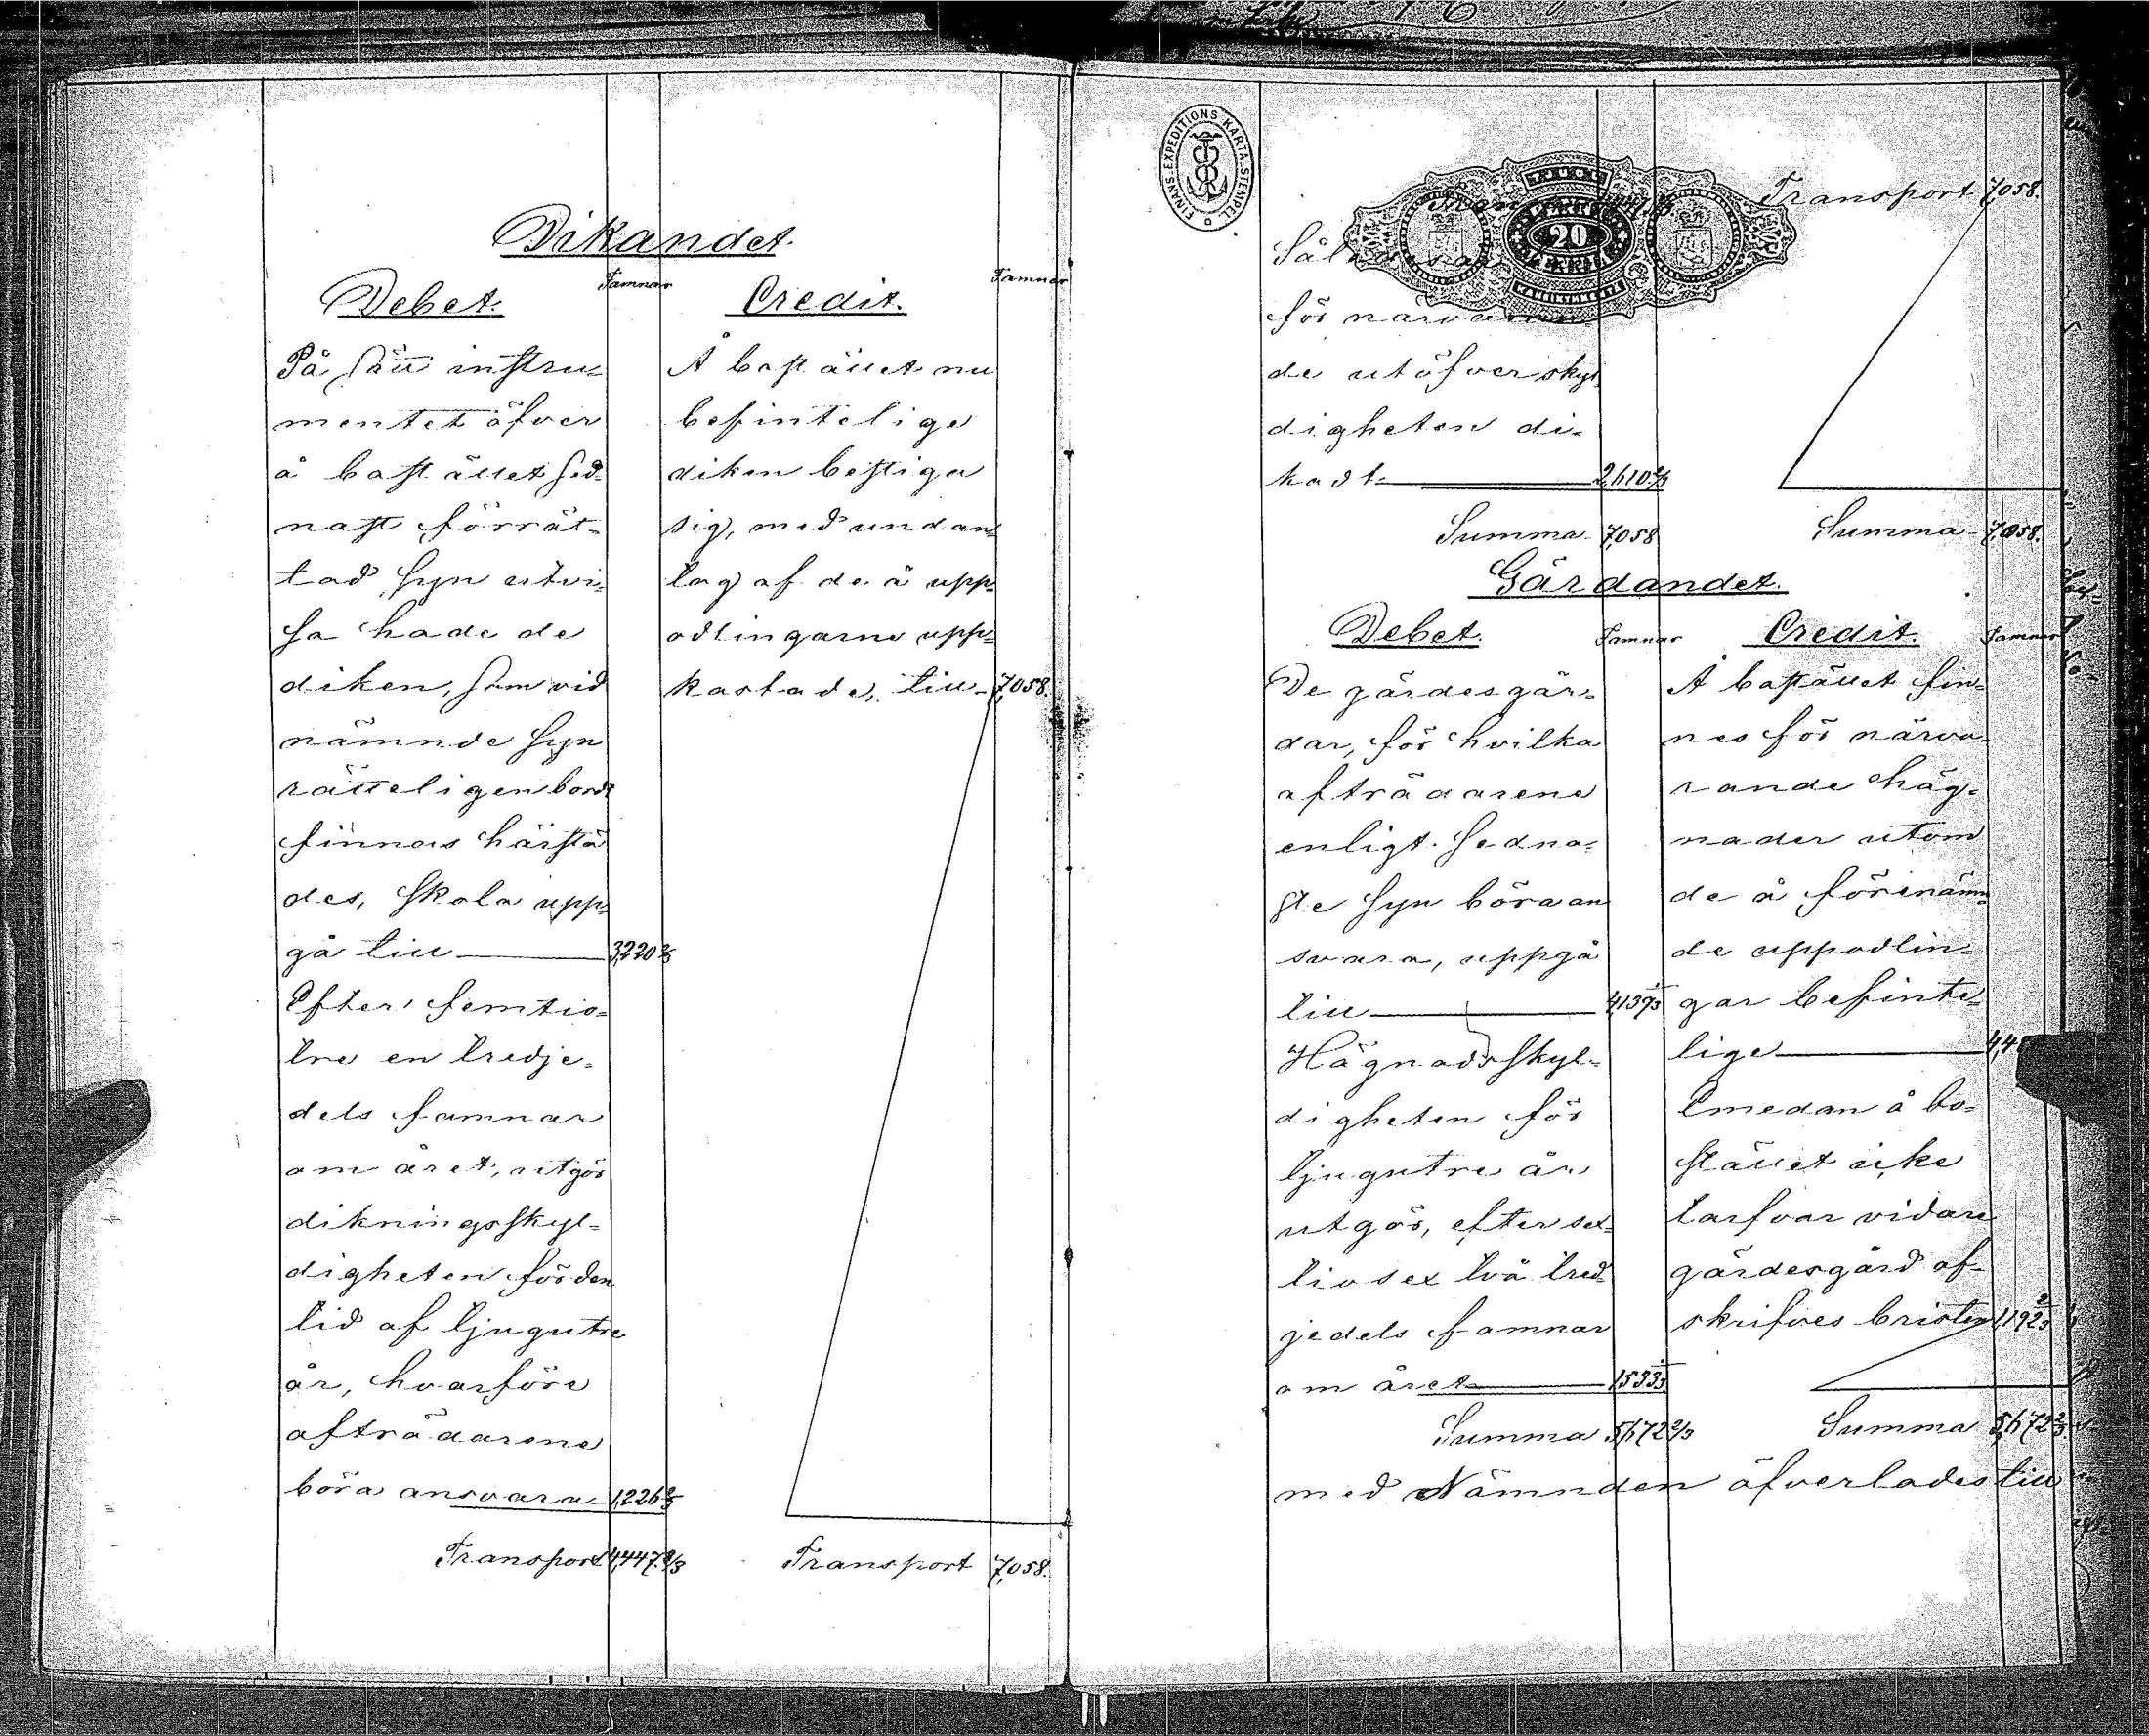 Dikandet.
Debet.
Famnar
På sätt instru-
mentet öfver
å bostället sed-
nast förrät-
tad syn utvi-
sa hade de
diken, som vid
nämnde syn
rätteligen bordt
finnas härstä
des, skola upp-
gå till 3,220 2/3
Efter femtio-
tre en tredje-
dels famnar
om året, utgör
dikningsskyl-
digheten för den
tid af tjugutre
år, hvarföre
afträdarene
böra ansvara 1,226 2/3
Transport 4,447. 1/3
Credit.
Famnar
Å bostället nu
befintelige
diken bestiga
sig, med undan
tag af de å upp-
odlingarne upp-
kastade, till 7,058.
Transport 7,058.
FINANS-EXPEDITIONS KARTA STEMPEL
20
Transport 7,058.
för
de utöfver skyl
digheten di-
kadt 2,610 2/3
Summa 7,058
Summa 7,058.
Gärdandet.
Debet.
Famnar
De gärdesgår-
dar, för hvilka
afträdarene
enligt sedna-
ste syn böra an
svara, uppgå
till 4,139 1/3
Hägnadsskyl-
digheten för
tjugutre år
utgör, efter sex-
tiosex två tred-
jedels famnar
om året 1533 1/3
Summa 5,672 2/3
Credit.
Famnar
Å bostället fin-
nes för närva-
rande häg-
nader utom
de å förenämn-
de uppodlin-
gar befinte-
lige
Emedan å bo-
stället icke
tarfvar vidare
gärdesgård af-
skrifves bristen 1,192 2/3
Summa 5,672 2/3
med Nämnden öfverlades till